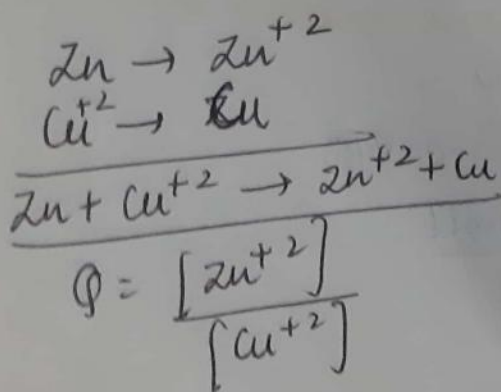 Zn → Zn⁺²
Cu⁺² → Cu
Zn + Cu⁺² → Zn⁺² + Cu
Q = [Zn⁺²] / [Cu⁺²]